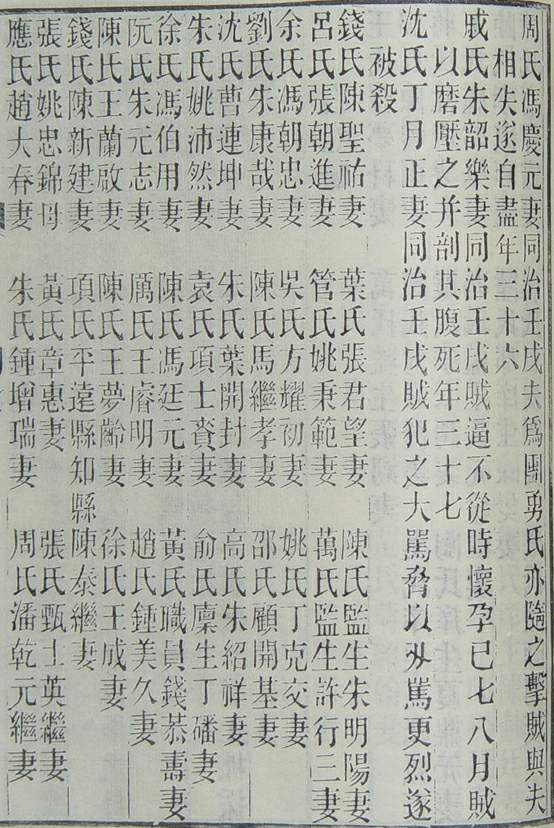 周氏馮慶元妻同治壬戌夫為團勇氏亦隨之擊賊與夫
相失遂自盡年三十六
戚氏朱韶樂妻同治壬戌賊逼不從時懷孕已七八月賊
以磨壓之并剖其腹死年三十七
沈氏丁月正妻同治壬戌賊犯之大罵脅以刃罵更烈遂
被殺
錢氏陳聖祐妻 葉氏張君望妻 陳氏監生朱明陽妻
呂氏張朝進妻 管氏姚秉範妻 萬氏監生許行三妻
余氏馮朝忠妻 吳氏方耀初妻 姚氏丁克交妻
劉氏朱康哉妻 陳氏馬繼孝妻 邵氏顧開基妻
沈氏曹連坤妻 朱氏葉開封妻 高氏朱紹祥妻
朱氏姚沛然妻 袁氏項士賚妻 俞氏廩生丁磻妻
徐氏馮伯用妻 陳氏馮廷元妻 黃氏職員錢恭壽妻
阮氏朱元志妻 厲氏王睿明妻 趙氏鍾美久妻
陳氏王蘭啟妻 陳氏王夢齡妻 徐氏王成妻
錢氏陳新建妻 項氏平遠縣知縣陳泰繼妻
張氏姚忠錦母 黃氏章惠妻 張氏甄士英繼妻
應氏趙大春妻 朱氏鍾增瑞妻 周氏潘乾元繼妻